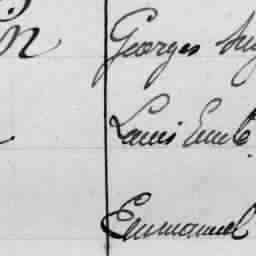 Georges
Louis Emile
Emmanuel